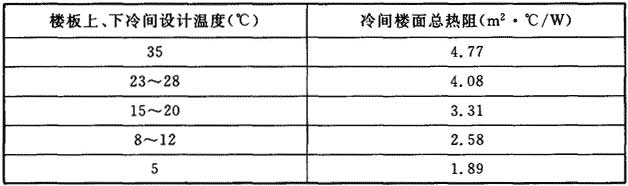 楼板上、下冷间设计温度(℃) 冷间楼面总热阻(m²·℃/W)
35 4.77
23～28 4.08
15～20 3.31
8～12 2.58
5 1.89